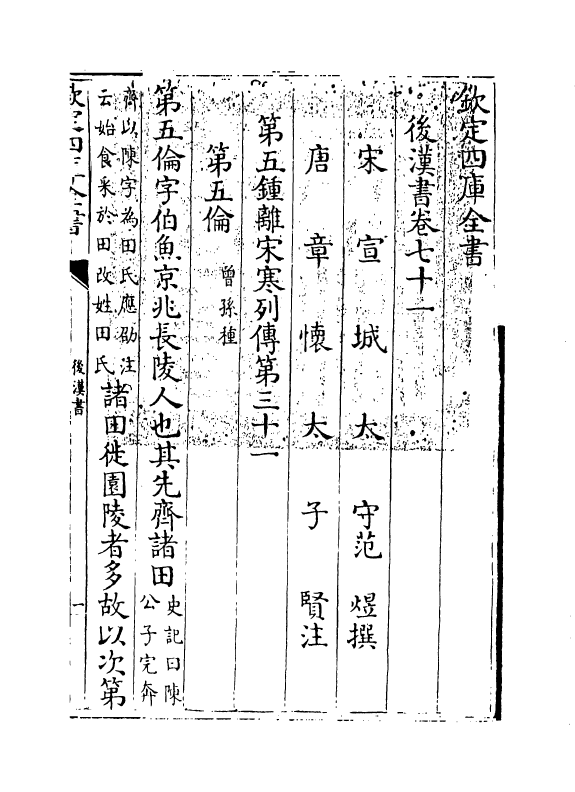 欽定四庫全書
後漢書卷七十一
宋宣城太守范煜撰
唐章懷太子賢注
第五鍾離宋寒列傳第三十一
第五倫曾孫種
第五倫字伯魚京兆長陵人也其先齊諸田史記曰陳公子完奔
齊以陳字為田氏應劭注云始食采於田改姓田氏諸田徙園陵者多故以次第
欽定四庫全書
後漢書
一